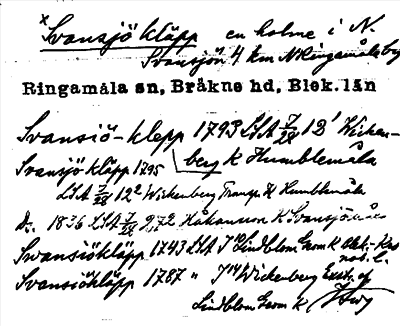 Svansjö kläpp en holme i N.
Svansjön 4 km N Ringamåla by
Ringamåla sn, Bräkne hd, Blek. län
Svansiö-klepp 1793 LSA 7/28 12¹ Wicken-
berg K Humblemåla
Svansjö kläpp 1795
LSA 7/28 12² Wickenberg Transp. K Humblemåla
D:o 1836 LSA 7/28 Håkansson K Svansjömåla
Swansiökläpp 1743 LSA J 10 Lindblom Geom K
Swansiökläpp 1787 " J 14 Wickenberg Exst. af
Lindblom Geom K